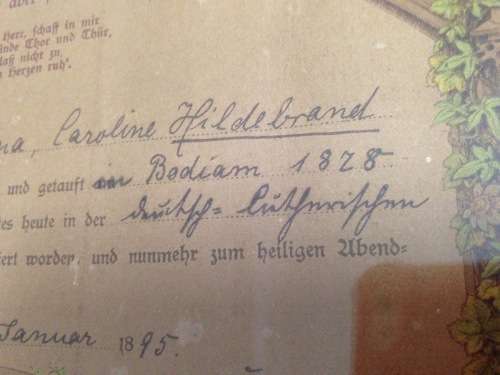 Herr, schaff in mir
ünde Thor und Thür,
laß nicht zu,
n Herzen ruh'.
na, Caroline Hildebrand
und getauft in Bodiam 1878
es heute in der deutsch-Lutherischen
iert worden, und nunmehr zum heiligen Abend=
Januar 1895.